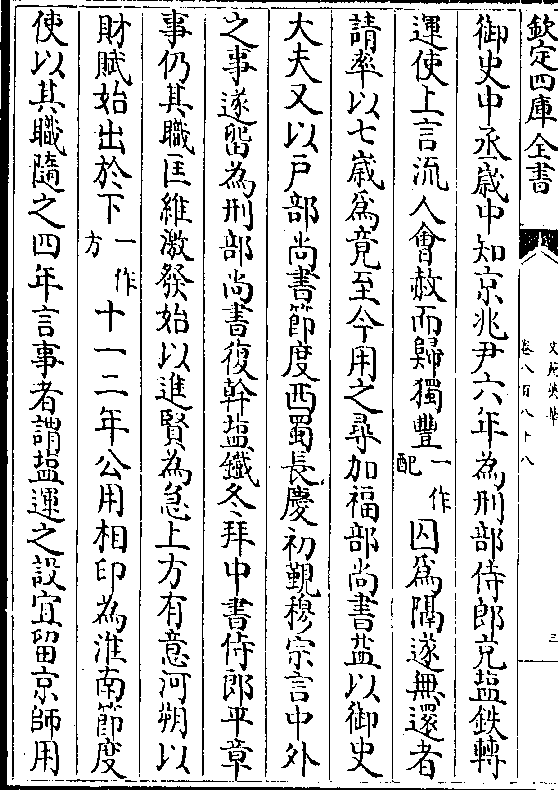 欽定四庫全書
文苑英華
卷八百八十八
三
御史中丞歲中知京兆尹六年為刑部侍郎充塩鉄轉
運使上言流人會赦而歸獨豐一作配囚為隔遂無還者
請率以七歲為竟至今用之尋加福部尚書益以御史
大夫又以戶部尚書節度西蜀長慶初覲穆宗言中外
之事遂留為刑部尚書復幹塩鐵冬拜中書侍郎平章
事仍其職匡維激發始以進賢為急上方有意河朔以
財賦始出於下一作方十一二年公用相印為淮南節度
使以其職隨之四年言事者謂塩運之設宜留京師用